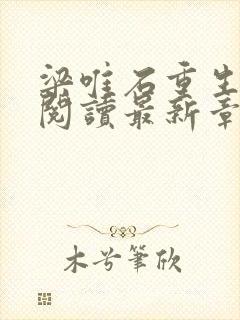 梁唯石重生
閱讀最新章
木兮筆欣